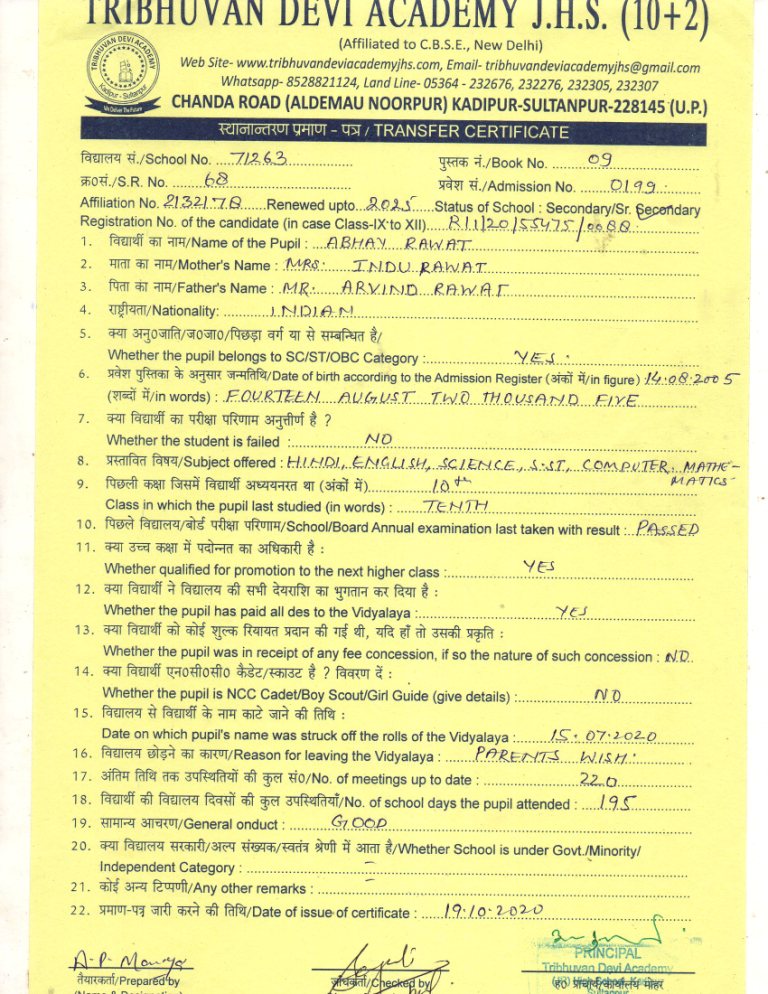 TRIBHUVAN DEVI ACADEMY J.H.S. (10+2)
(Affiliated to C.B.S.E., New Delhi)
TRIBHUVAN DEVI ACADEMY
Kadipur - Sultanpur
We Deliver The Future
Web Site- www.tribhuvandeviacademyjhs.com, Email- tribhuvandeviacademyjhs@gmail.com
Whatsapp- 8528821124, Land Line- 05364 - 232676, 232276, 232305, 232307
CHANDA ROAD (ALDEMAU NOORPUR) KADIPUR-SULTANPUR-228145 (U.P.)
स्थानान्तरण प्रमाण - पत्र / TRANSFER CERTIFICATE
विद्यालय सं./School No. 71263 पुस्तक नं./Book No. 09
क्र०सं./S.R. No. 68 प्रवेश सं./Admission No. 0199
Affiliation No. 2132178 Renewed upto 2025 Status of School : Secondary/Sr. Secondary
Registration No. of the candidate (in case Class-IX to XII) R/1/20/55475/0088
1. विद्यार्थी का नाम/Name of the Pupil : ABHAY RAWAT
2. माता का नाम/Mother's Name : MRS. INDU RAWAT
3. पिता का नाम/Father's Name : MR. ARVIND RAWAT
4. राष्ट्रीयता/Nationality: INDIAN
5. क्या अनु०जाति/ज०जा०/पिछड़ा वर्ग या से सम्बन्धित है/
Whether the pupil belongs to SC/ST/OBC Category : YES.
6. प्रवेश पुस्तिका के अनुसार जन्मतिथि/Date of birth according to the Admission Register (अंकों में/in figure) 14.08.2005
(शब्दों में/in words) : FOURTEEN AUGUST TWO THOUSAND FIVE
7. क्या विद्यार्थी का परीक्षा परिणाम अनुत्तीर्ण है ?
Whether the student is failed : NO
8. प्रस्तावित विषय/Subject offered : HINDI, ENGLISH, SCIENCE, S.ST, COMPUTER, MATHE-
MATICS
9. पिछली कक्षा जिसमें विद्यार्थी अध्ययनरत था (अंकों में) 10th
Class in which the pupil last studied (in words) : TENTH
10. पिछले विद्यालय/बोर्ड परीक्षा परिणाम/School/Board Annual examination last taken with result : PASSED
11. क्या उच्च कक्षा में पदोन्नत का अधिकारी है :
Whether qualified for promotion to the next higher class : YES
12. क्या विद्यार्थी ने विद्यालय की सभी देयराशि का भुगतान कर दिया है :
Whether the pupil has paid all des to the Vidyalaya : YES
13. क्या विद्यार्थी को कोई शुल्क रियायत प्रदान की गई थी, यदि हाँ तो उसकी प्रकृति :
Whether the pupil was in receipt of any fee concession, if so the nature of such concession : NO
14. क्या विद्यार्थी एन०सी०सी० कैडेट/स्काउट है ? विवरण दें :
Whether the pupil is NCC Cadet/Boy Scout/Girl Guide (give details) : NO
15. विद्यालय से विद्यार्थी के नाम काटे जाने की तिथि :
Date on which pupil's name was struck off the rolls of the Vidyalaya : 15.07.2020
16. विद्यालय छोड़ने का कारण/Reason for leaving the Vidyalaya : PARENTS WISH.
17. अंतिम तिथि तक उपस्थितियों की कुल सं०/No. of meetings up to date : 220
18. विद्यार्थी की विद्यालय दिवसों की कुल उपस्थितियाँ/No. of school days the pupil attended : 195
19. सामान्य आचरण/General onduct : GOOD
20. क्या विद्यालय सरकारी/अल्प संख्यक/स्वतंत्र श्रेणी में आता है/Whether School is under Govt./Minority/
Independent Category : -
21. कोई अन्य टिप्पणी/Any other remarks : -
22. प्रमाण-पत्र जारी करने की तिथि/Date of issue of certificate : 19.10.2020
PRINCIPAL
Tribhuvan Devi Academy
तैयारकर्ता/Prepared by जाँचकर्ता/Checked by ह० प्राचार्य/कार्यालय मोहर
Sultanpur